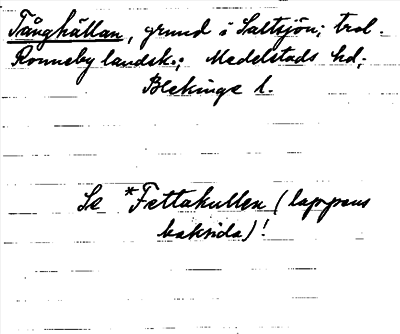 Tånghällan, grund i Saltsjön; trol.
Ronneby landsk:; Medelstads hd;
Blekinge l.
Se *Fettakullen (lappens
baksida)!